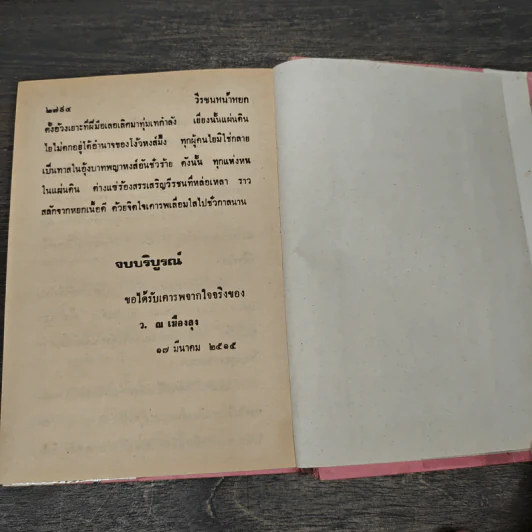 ๒๗๙๔ วีรชนหน้าหยก
ตั้งอ้วงเยาะที่ฝีมือเลอเลิศมาทุ่มเทกำลัง เยี่ยงนั้นแผ่นดิน
ไยไม่ตกอยู่ใต้อำนาจของโง้วหงส์มึ้ง ทุกผู้คนไยมิใช่กลาย
เป็นทาสในอุ้งบาทพญาหงส์อันชั่วร้าย ดังนั้น ทุกแห่งหน
ในแผ่นดิน ต่างแซ่ร้องสรรเสริญวีรชนที่หล่อเหลา ราว
สลักจากหยกเนื้อดี ด้วยจิตใจเคารพเลื่อมใสไปชั่วกาลนาน
จบบริบูรณ์
ขอได้รับเคารพจากใจจริงของ
ว. ณ เมืองลุง
๑๗ มีนาคม ๒๕๑๕